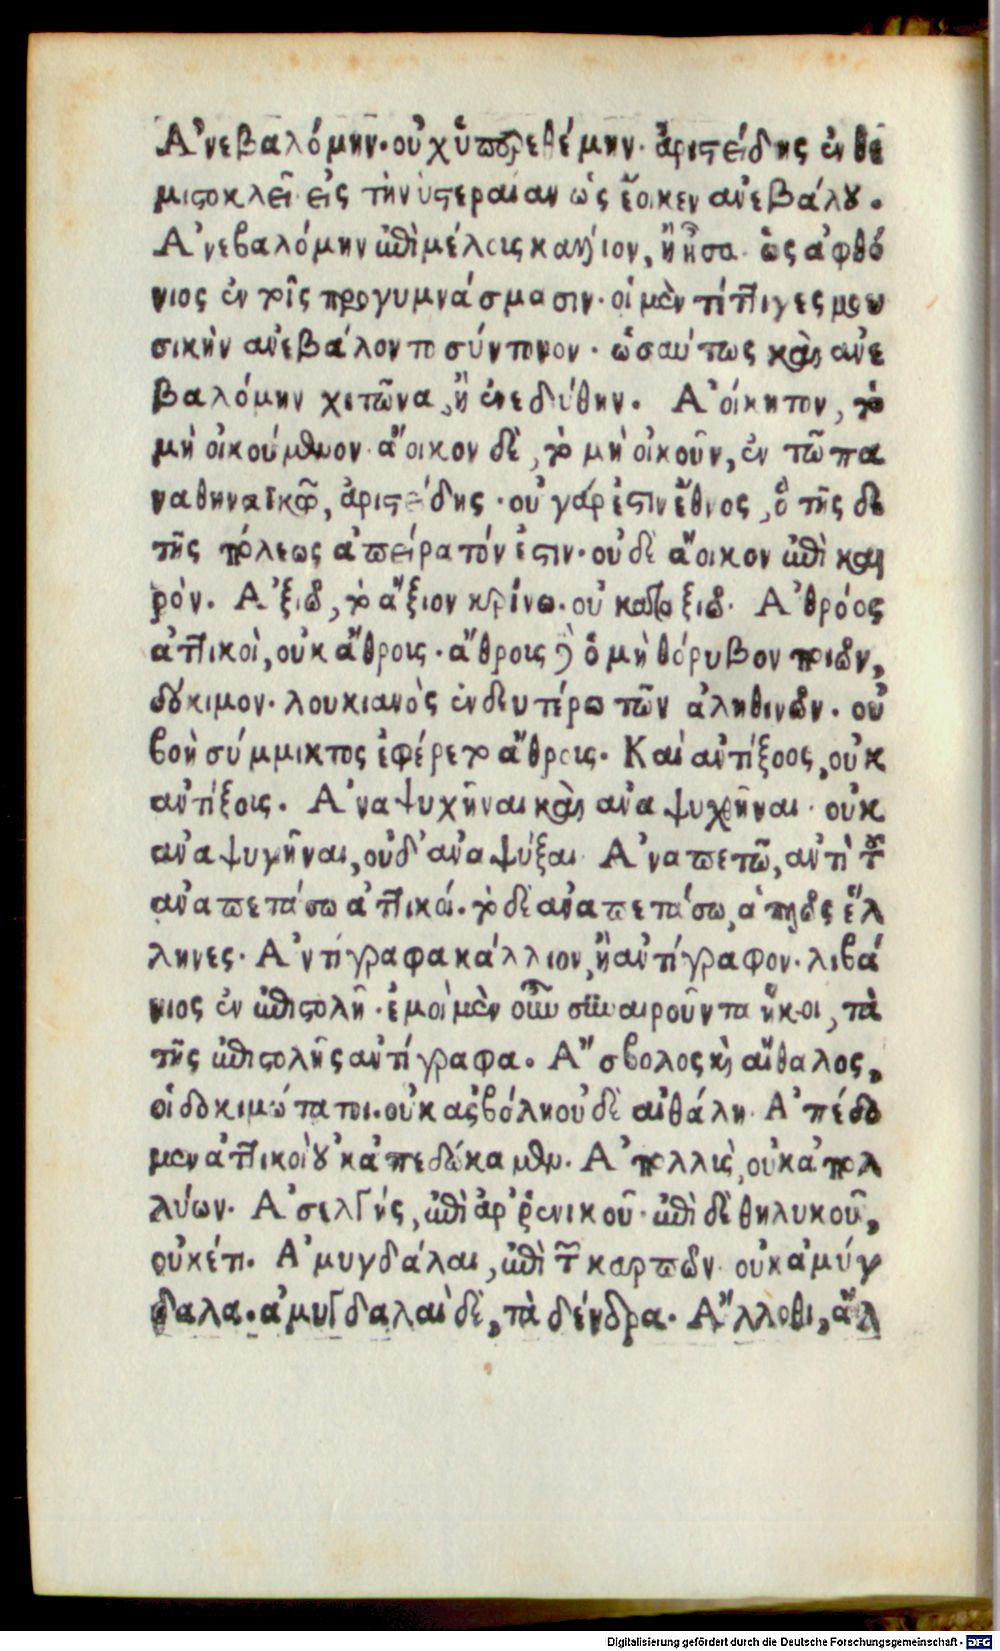 Ἀνεβαλόμην· οὐχ ὑπερεθέμην· ἀριστείδης ἐν θε
μιστοκλεῖ· εἰς τὴν ὑστεραίαν ὡς ἔοικεν ἀνεβάλου.
Ἀνεβαλόμην ἐπὶ μέλους κάλλιον, ἢ ᾖσα· ὡς ἀφθό
νιος ἐν τοῖς προγυμνάσμασιν· οἱ μὲν τέττιγες μου
σικὴν ἀνεβάλοντο σύντονον· ὡσαύτως καὶ ἀνε
βαλόμην χιτῶνα, ἢ ἐνεδύθην. Ἀοίκητον, τὸ
μὴ οἰκούμενον· ἄοικον δὲ, τὸ μὴ οἰκοῦν, ἐν τῶ πα
ναθηναϊκῶ, ἀριστείδης· οὐ γάρ ἐστιν ἔθνος, ὃ τῆς δε
τῆς πόλεως ἀπείρατόν ἐστιν· οὐδὲ ἄοικον ἐπὶ και
ρόν. Ἀξιῶ, τὸ ἄξιον κρίνω· οὐ καταξιῶ. Ἀθρόος
ἀττικοὶ, οὐκ ἄθροις· ἄθροις δὲ ὁ μὴ θόρυβον ποιῶν,
δόκιμον· λουκιανὸς ἐν δευτέρω τῶν ἀληθινῶν· οὐ
βοὴ σύμμικτος ἐφέρετο ἄθροις. Καὶ ἀντίξοος, οὐκ
ἀντίξοις. Ἀναψυχῆναι καὶ ἀναψυχῆναι· οὐκ
ἀναψυγῆναι, οὐδ' ἀναψύξαι. Ἀναπετῶ, ἀντὶ τοῦ
ἀναπετάσω ἀττικοί· τὸ δὲ ἀναπετάσω, ἁπλῶς ἕλ
ληνες. Ἀντίγραφα κάλλιον, ἢ ἀντίγραφον· λιβά
νιος ἐν ἐπιστολῆ· ἐμοὶ μὲν οὖν συναιροῦντα ἥκοι, τὰ
τῆς ἐπιστολῆς ἀντίγραφα. Ἄσβολος καὶ αἴθαλος,
οἱ δοκιμώτατοι· οὐκ ἀσβόλη οὐδὲ αἰθάλη. Ἀπέδο
μεν ἀττικοὶ οὐκ ἀπεδώκαμεν. Ἀπολλὶς, οὐκ ἀπολ
λύων. Ἀσελγής, ἐπὶ ἀρῥενικοῦ· ἐπὶ δὲ θηλυκοῦ,
οὐκέτι. Ἀμυγδάλαι, ἐπὶ τῶν καρπῶν· οὐκ ἀμύγ
δαλα· ἀμυγδαλαῖ δὲ, τὰ δένδρα. Ἄλλοθι, ἀλ
Digitalisierung gefördert durch die Deutsche Forschungsgemeinschaft - DFG